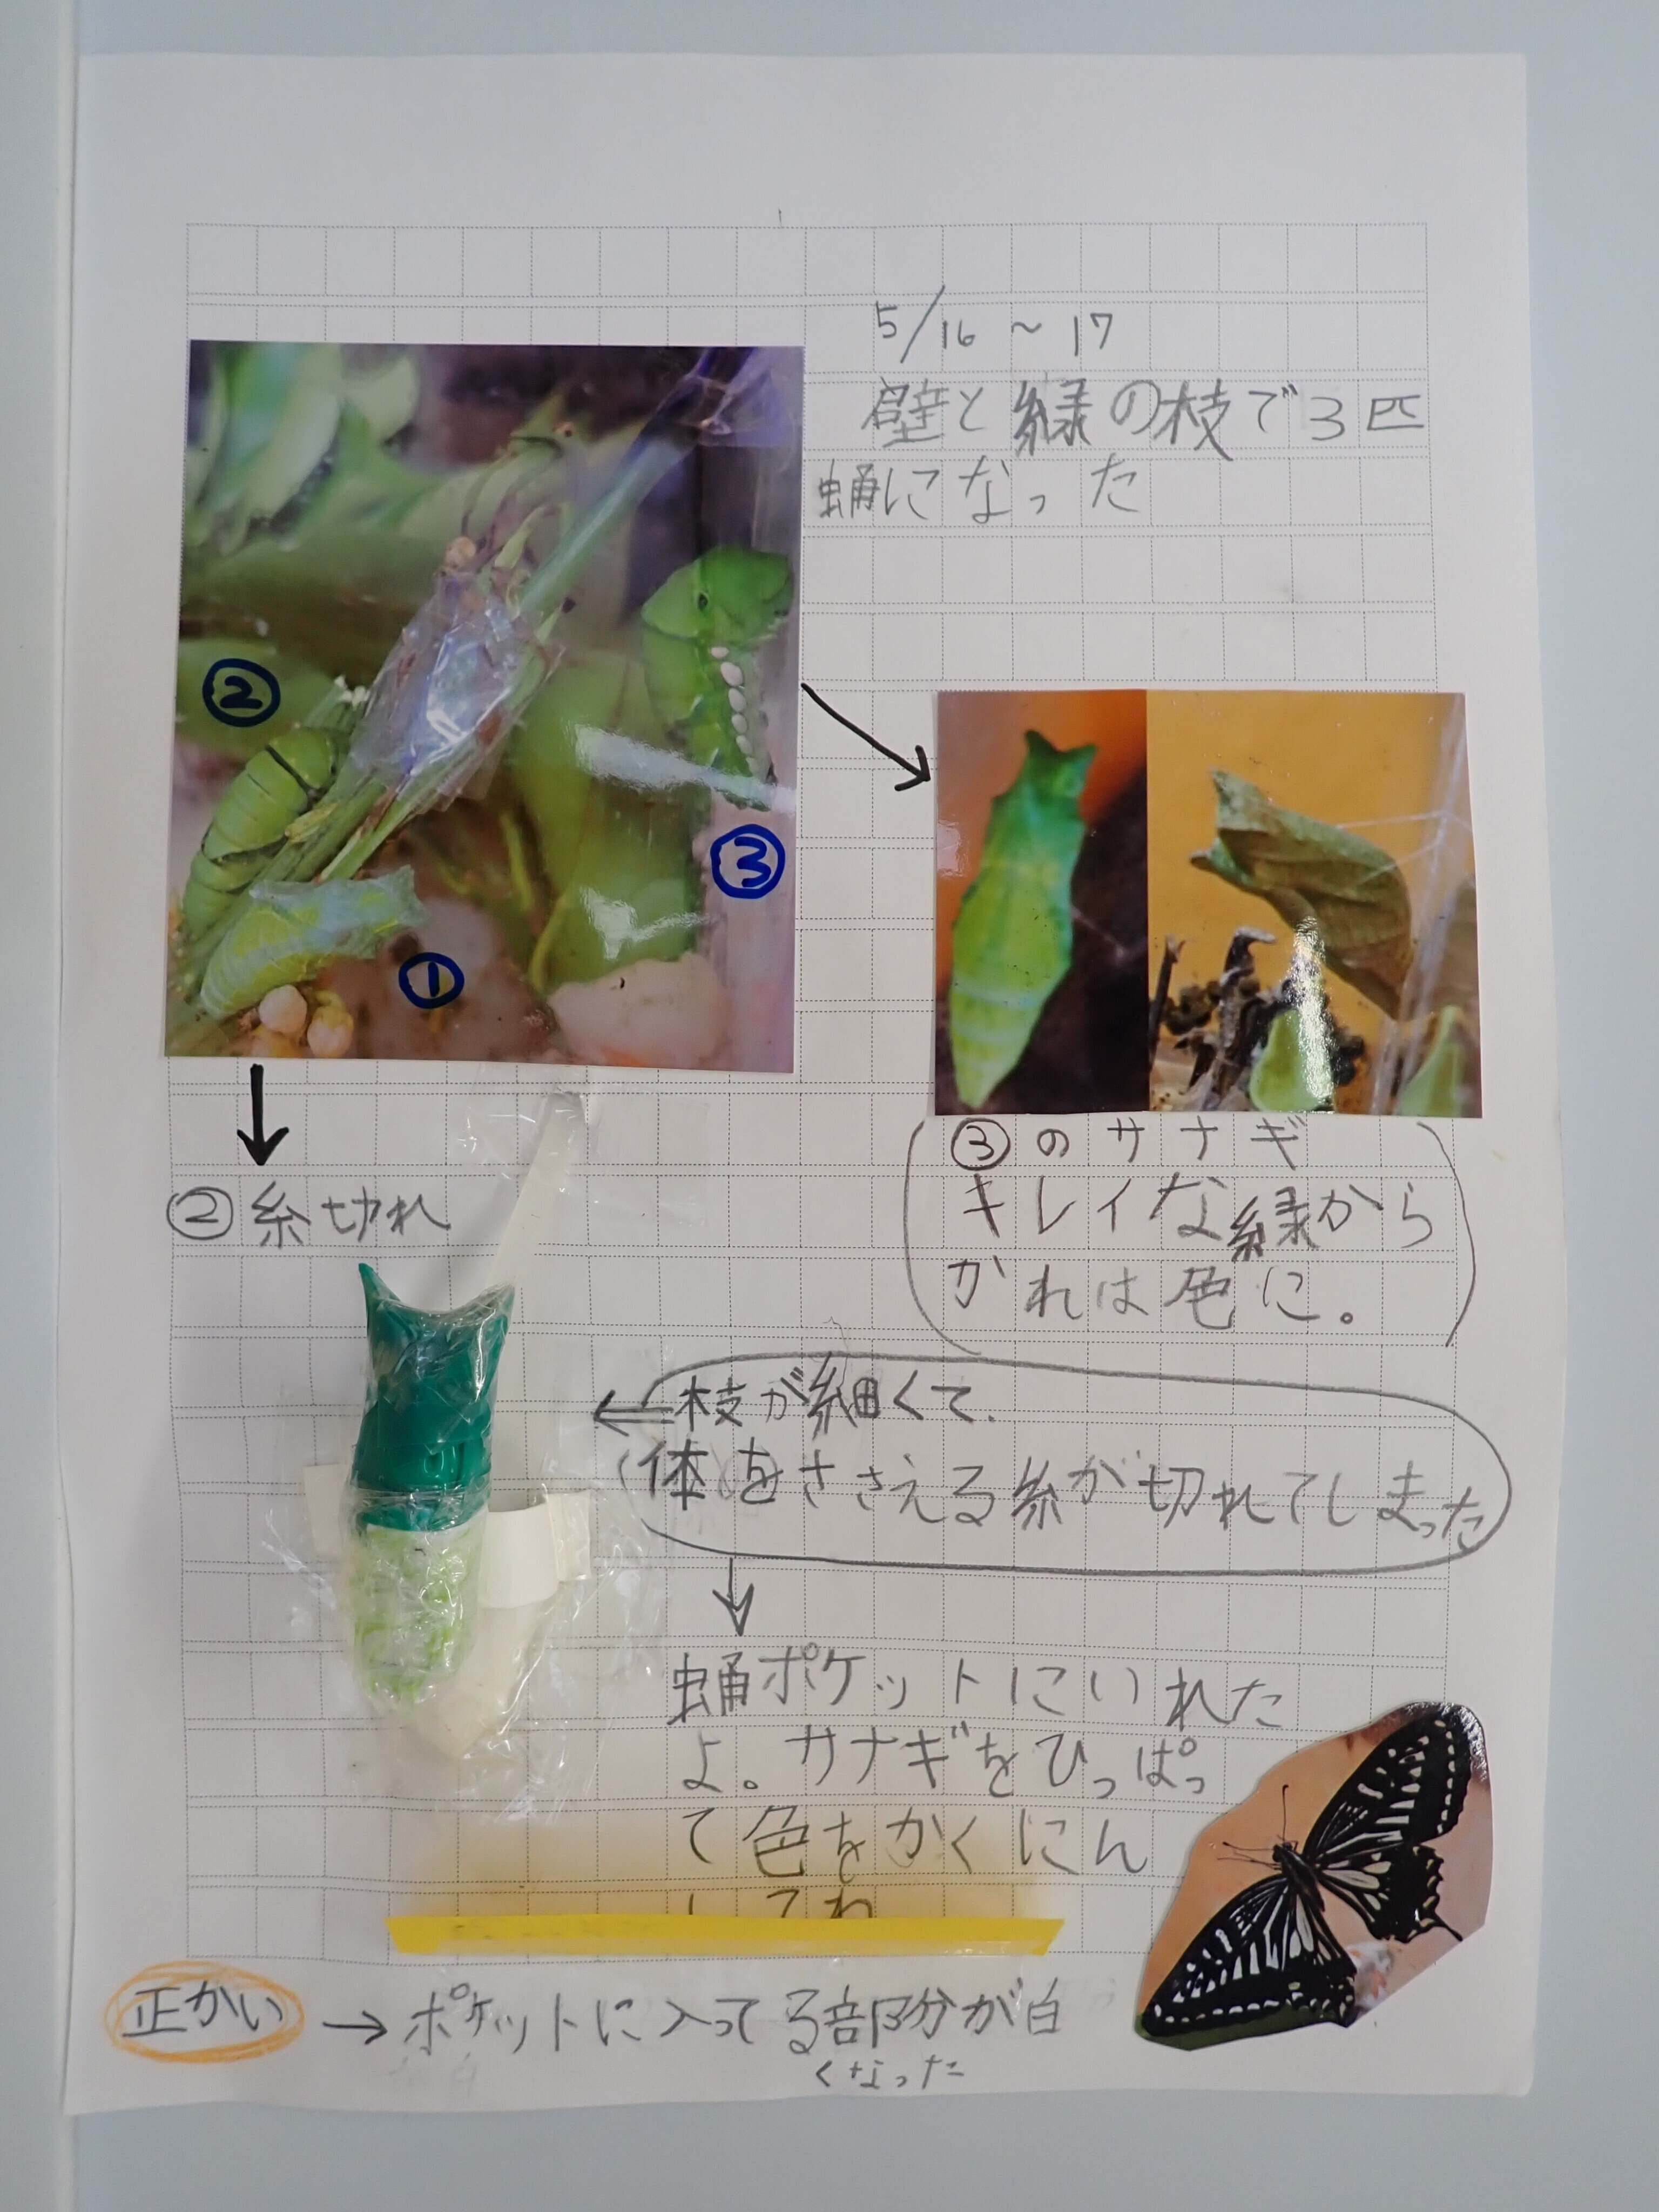 5/16～17
壁と緑の枝で3匹
蛹になった
②
③
①
③のサナギ
キレイな緑から
かれは色に。
②糸切れ
枝が細くて、
体をささえる糸が切れてしまった
蛹ポケットにいれた
よ。サナギをひっぱっ
て色をかくにん
してね
正かい→ポケットに入ってる部分が白
くなった